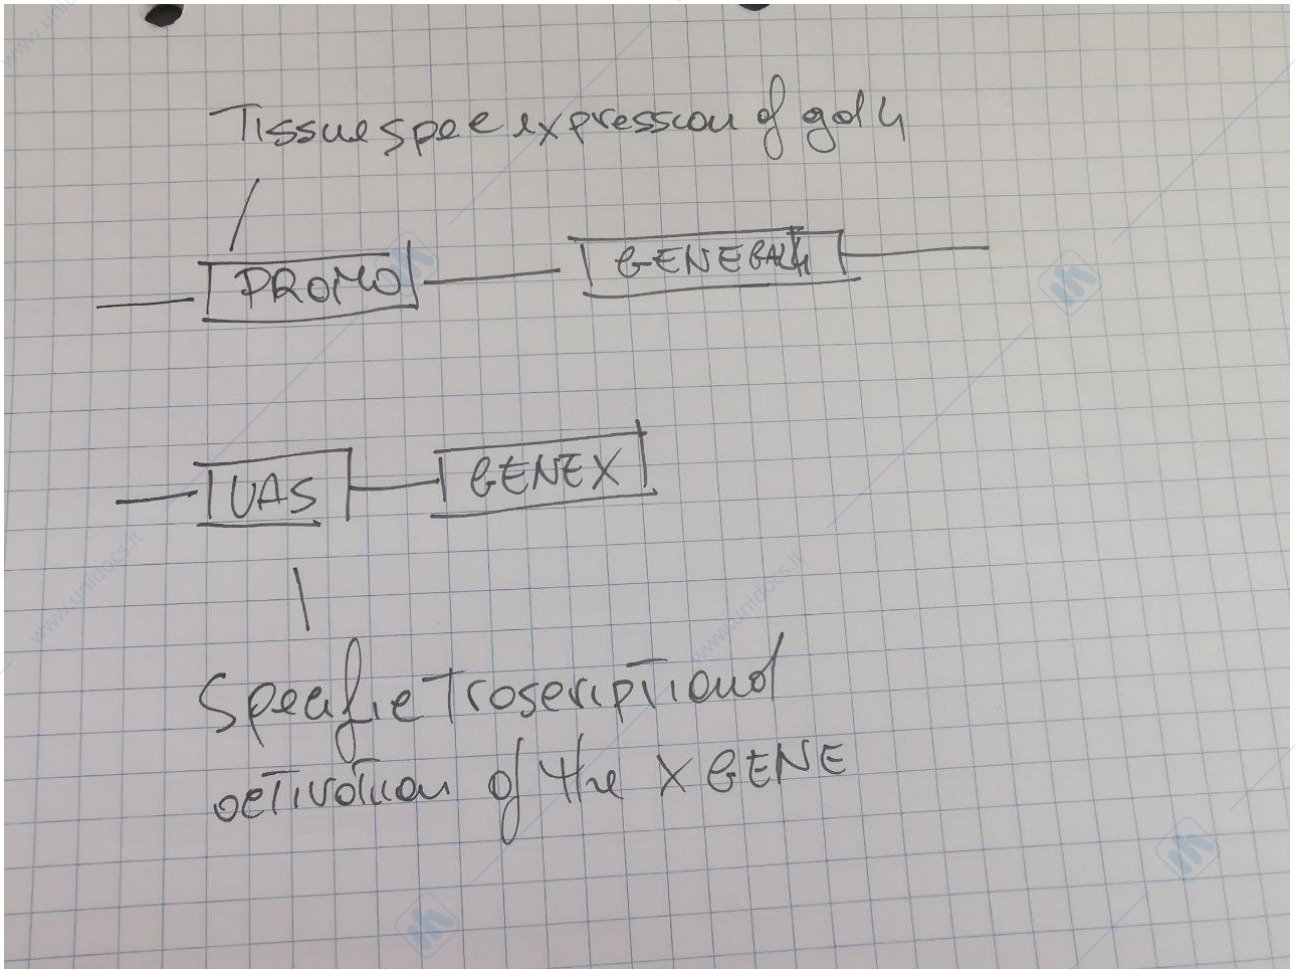 Tissue spec expression of gal4
PROMO
GENE GAL4
UAS
GENE X
Specific Trascriptional
activation of the X GENE
www.unidocs.it
www.unidocs.it